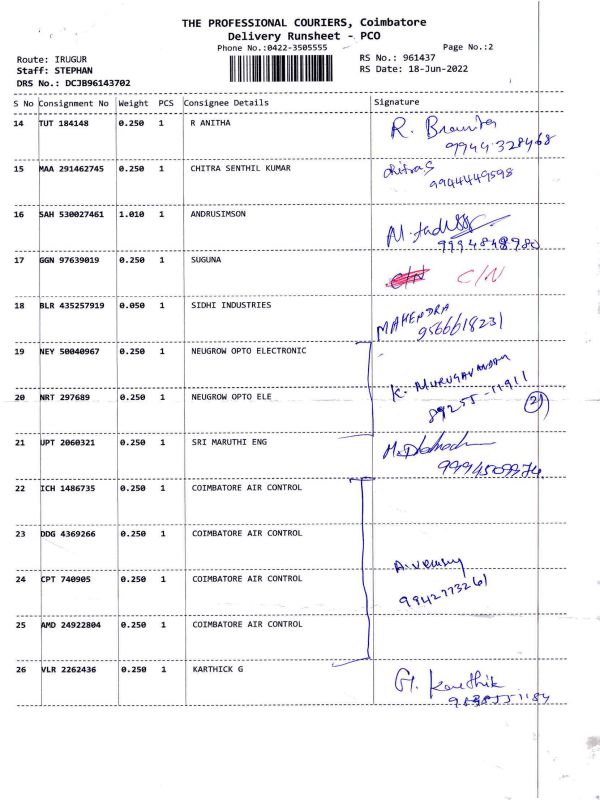 THE PROFESSIONAL COURIERS, Coimbatore
Delivery Runsheet - PCO
Phone No.:0422-3505555
Page No.:2
Route: IRUGUR
RS No.: 961437
Staff: STEPHAN
RS Date: 18-Jun-2022
DRS No.: DCJB96143702
S No Consignment No Weight PCS Consignee Details Signature
14 TUT 184148 0.250 1 R ANITHA R.
99441 328468
15 MAA 291462745 0.250 1 CHITRA SENTHIL KUMAR chitra S
9944449598
16 SAH 530027461 1.010 1 ANDRUSIMSON
9994848980
17 GGN 97639019 0.250 1 SUGUNA C/N C/N
18 BLR 435257919 0.050 1 SIDHI INDUSTRIES MAHENDRA
9566618231
19 NEY 50040967 0.250 1 NEUGROW OPTO ELECTRONIC
K. MURUGANANDAM
20 NRT 297689 0.250 1 NEUGROW OPTO ELE
89255-11911
2
21 UPT 2060321 0.250 1 SRI MARUTHI ENG
9994509974
22 ICH 1486735 0.250 1 COIMBATORE AIR CONTROL
23 DDG 4369266 0.250 1 COIMBATORE AIR CONTROL
24 CPT 740905 0.250 1 COIMBATORE AIR CONTROL
9942773261
25 AMD 24922804 0.250 1 COIMBATORE AIR CONTROL
26 VLR 2262436 0.250 1 KARTHICK G G. Karthik